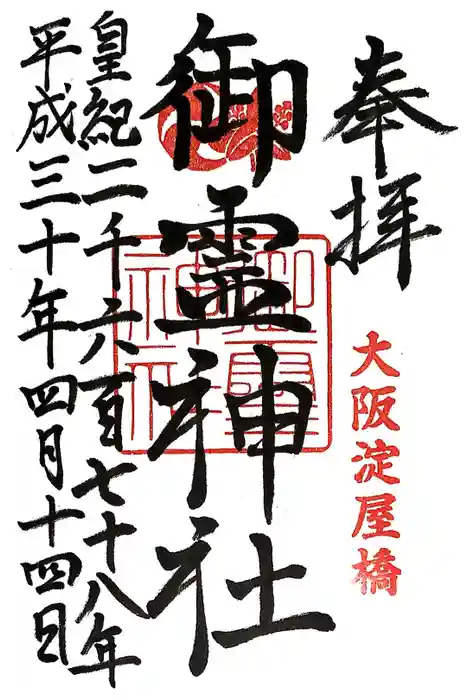 奉拝
大阪淀屋橋
御霊神社
御霊神社
皇紀二千六百七十八年
平成三十年四月十四日